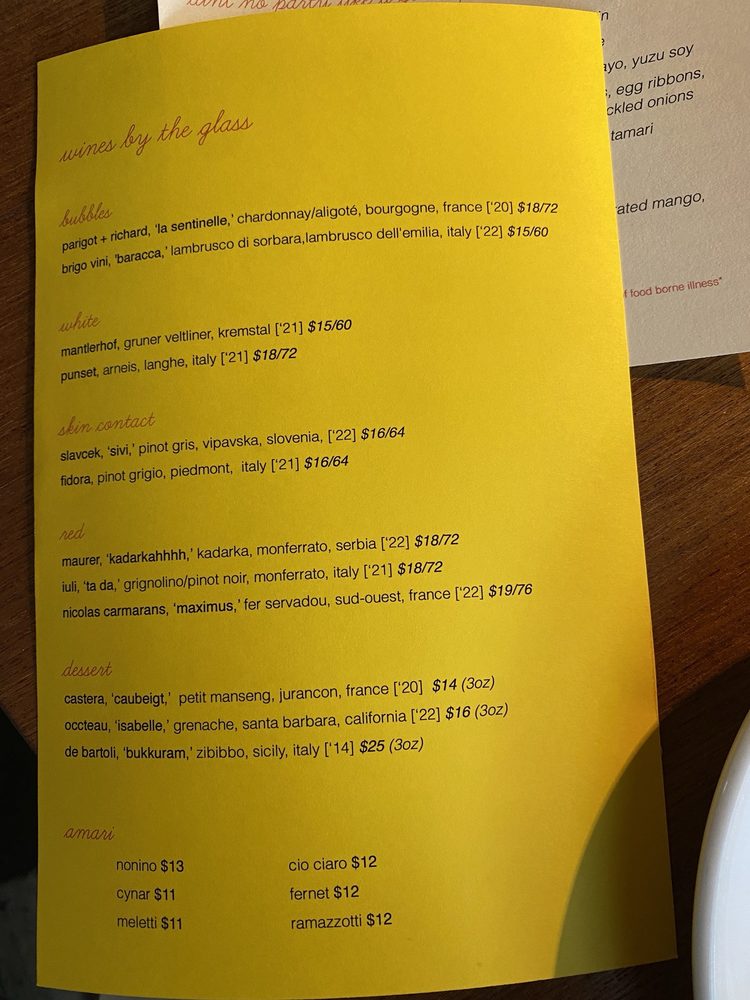 wines by the glass
bubbles
parigot + richard, 'la sentinelle,' chardonnay/aligoté, bourgogne, france ['20] $18/72
brigo vini, 'baracca,' lambrusco di sorbara,lambrusco dell'emilia, italy ['22] $15/60
white
mantlerhof, gruner veltliner, kremstal ['21] $15/60
punset, arneis, langhe, italy ['21] $18/72
skin contact
slavcek, 'sivi,' pinot gris, vipavska, slovenia, ['22] $16/64
fidora, pinot grigio, piedmont, italy ['21] $16/64
red
maurer, 'kadarkahhhh,' kadarka, monferrato, serbia ['22] $18/72
iuli, 'ta da,' grignolino/pinot noir, monferrato, italy ['21] $18/72
nicolas carmarans, 'maximus,' fer servadou, sud-ouest, france ['22] $19/76
dessert
castera, 'caubeigt,' petit manseng, jurancon, france ['20] $14 (3oz)
occteau, 'isabelle,' grenache, santa barbara, california ['22] $16 (3oz)
de bartoli, 'bukkuram,' zibibbo, sicily, italy ['14] $25 (3oz)
amari
nonino $13 cio ciaro $12
cynar $11 fernet $12
meletti $11 ramazzotti $12
yuzu soy
egg ribbons,
onions
tamari
mango,
food borne illness*